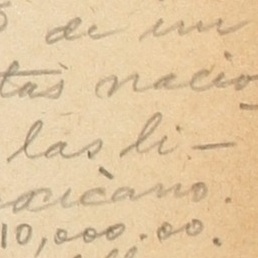 de un
tas nacio
las li-
xicano.
10,000.00.